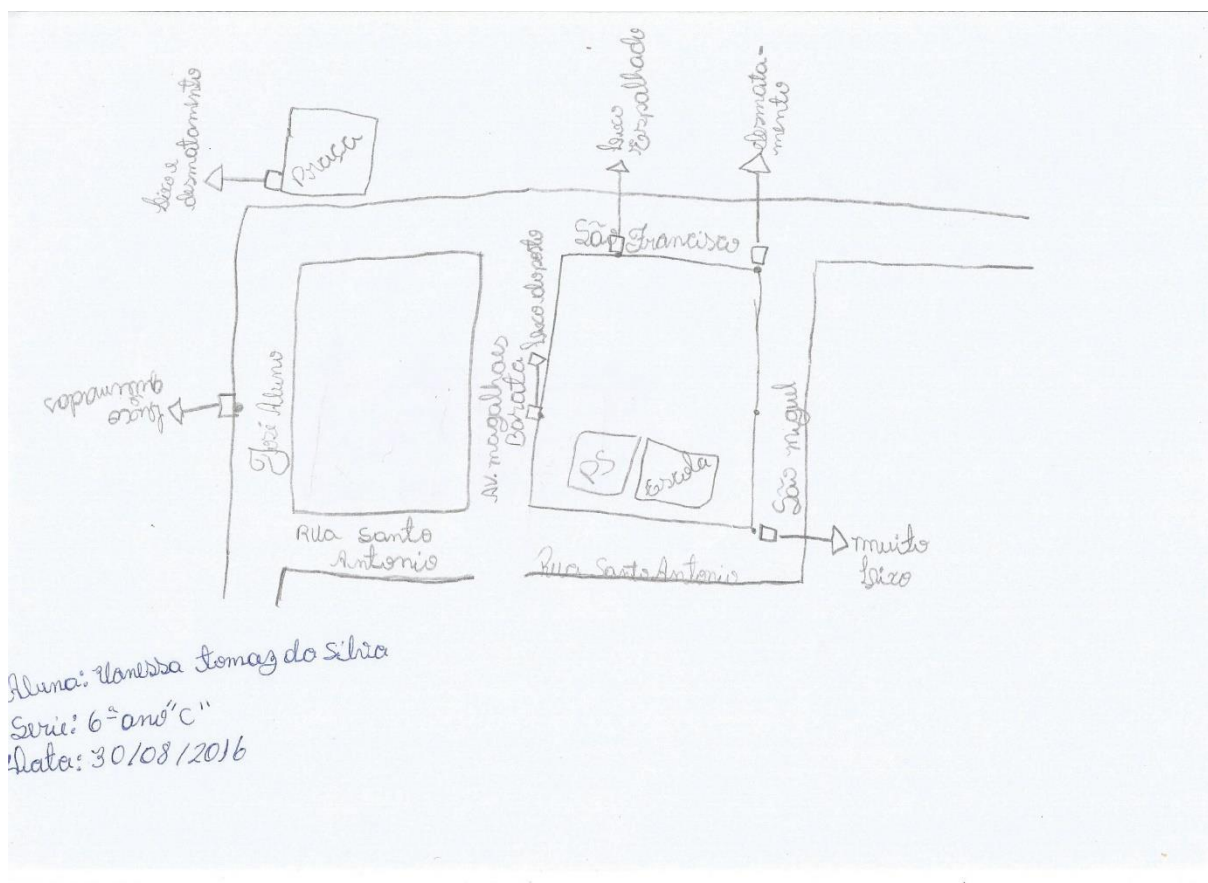 lixo e
desmatamento
Praça
lixo
Espalhado
desmata-
mento
São Francisco
lixo disposto
lixo
queimados
José Aluno
AV. magalhães
Barata
PS
Escola
São Miguel
Rua Santo
Antonio
Rua Santo Antonio
muito
lixo
Aluna: Vanessa tomaz da Silva
Serie: 6ª ano "C"
Data: 30/08/2016